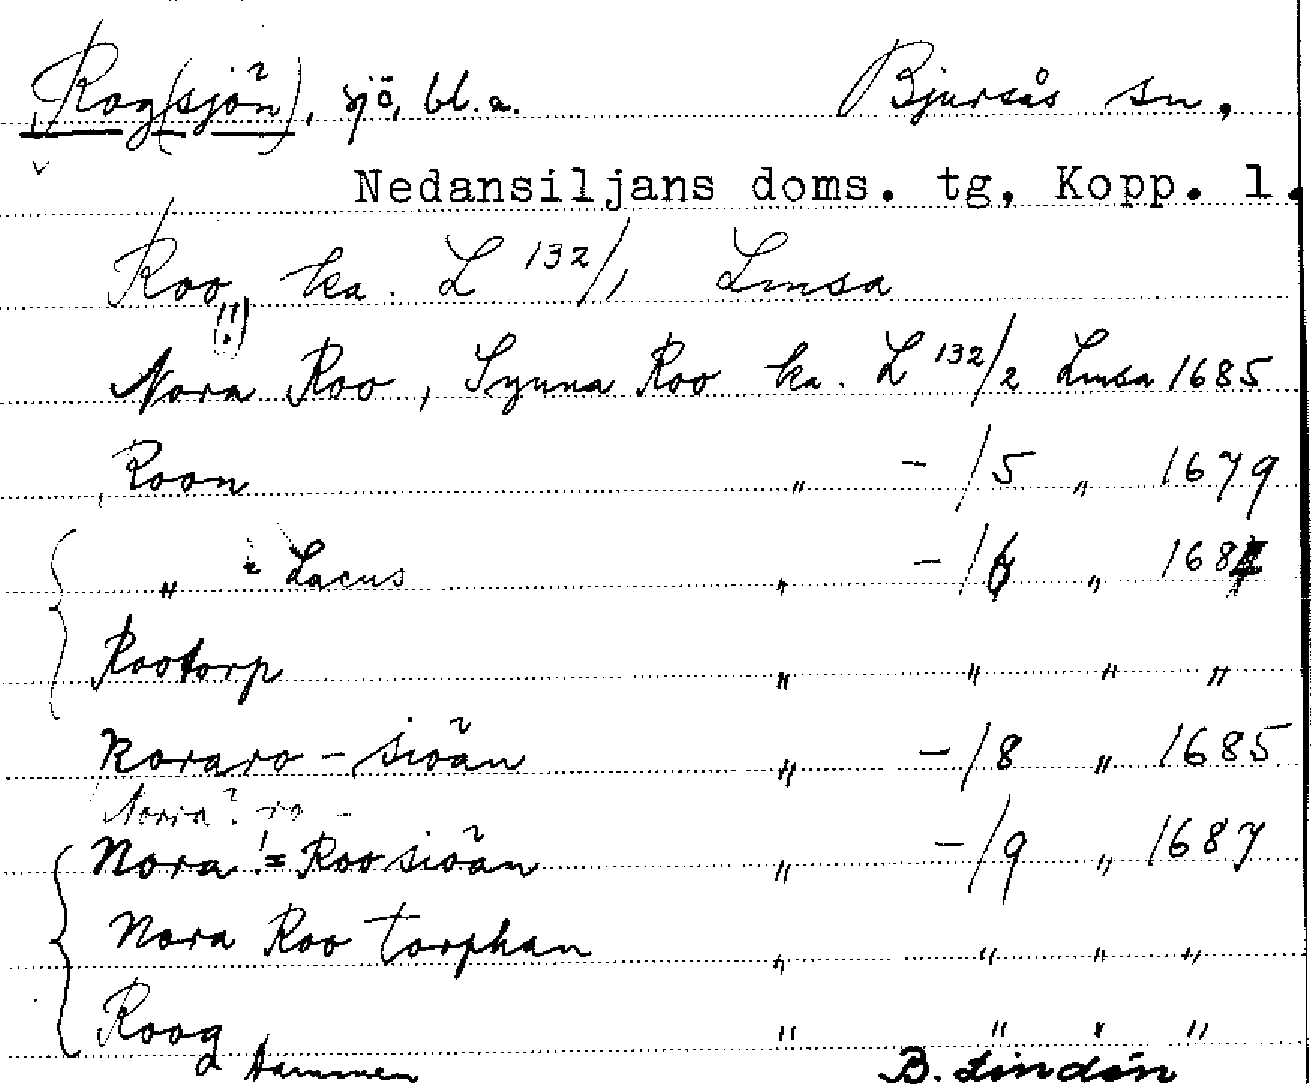 Rog(sjön), sjö, bl. a. Bjursås sn.
Nedansiljans doms. tg, Kopp. l.
Roo ka. L 132/1 Lmsa
(!)
Nora Roo, Synna Roo ka. L 132/2 Lmsa 1685
Roon " - /5 " 1679
" = Lacus " - /6 " 168
Rootorp " " " "
Roraro - siöän " - /8 " 1685
Norra? ro -
Nora != Roo siöän " - /9 " 1687
Nora Roo torphan " " " "
Roog " " " "
dammen B. Lindén